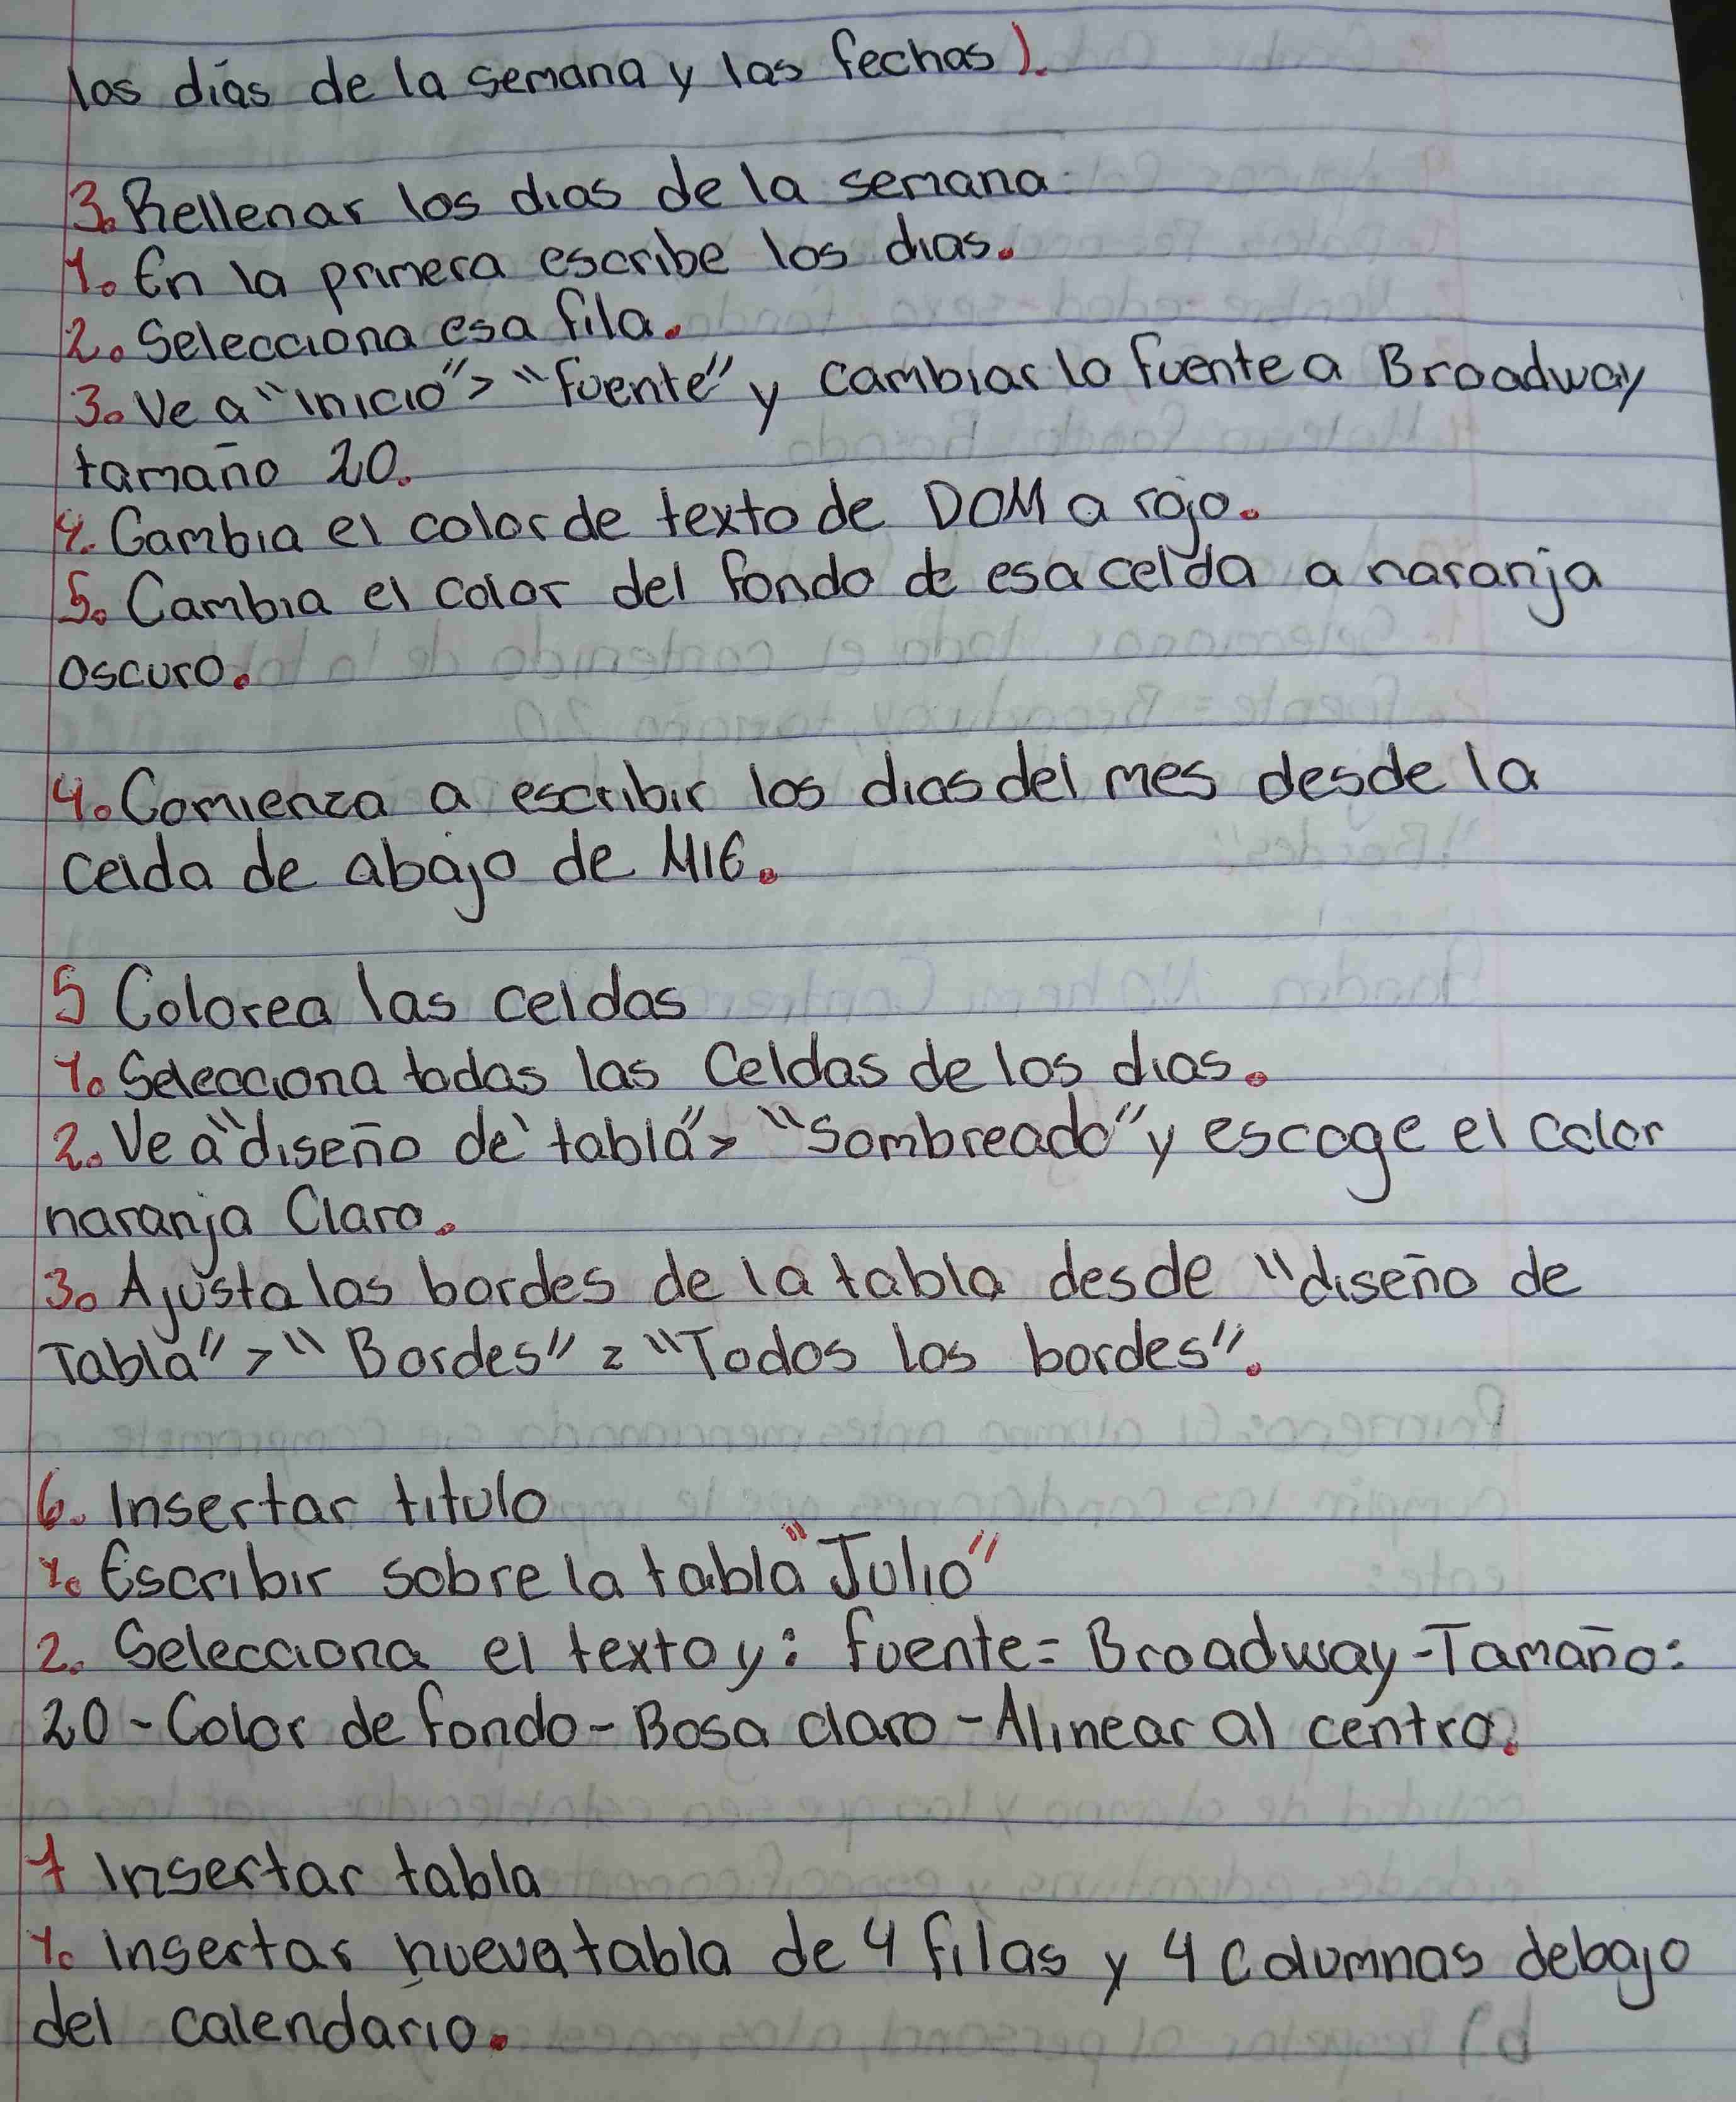 los días de la semana y las fechas).
3. Rellenar los dias de la semana
1. En la primera escribe los dias.
2. Selecciona esa fila.
3. Ve a "inicio" > "fuente" y cambiar la fuente a Broadway
tamaño 20.
4. Cambia el color de texto de DOM a rojo.
5. Cambia el color del fondo de esa celda a naranja
oscuro.
4. Comienza a escribir los dias del mes desde la
celda de abajo de MIE.
5 Colorea las celdas
1. Selecciona todas las Celdas de los dias.
2. Ve a "diseño de tabla" > "Sombreado" y escoge el color
naranja Claro.
3. Ajusta los bordes de la tabla desde "diseño de
Tabla" > "Bordes" = "Todos los bordes".
6. Insertar titulo
1. Escribir sobre la tabla "Julio"
2. Selecciona el texto y: fuente= Broadway-Tamaño:
20-Color de fondo-Rosa claro-Alinear al centro.
7 Insertar tabla
1. Insertar nueva tabla de 4 filas y 4 Columnas debajo
del calendario.